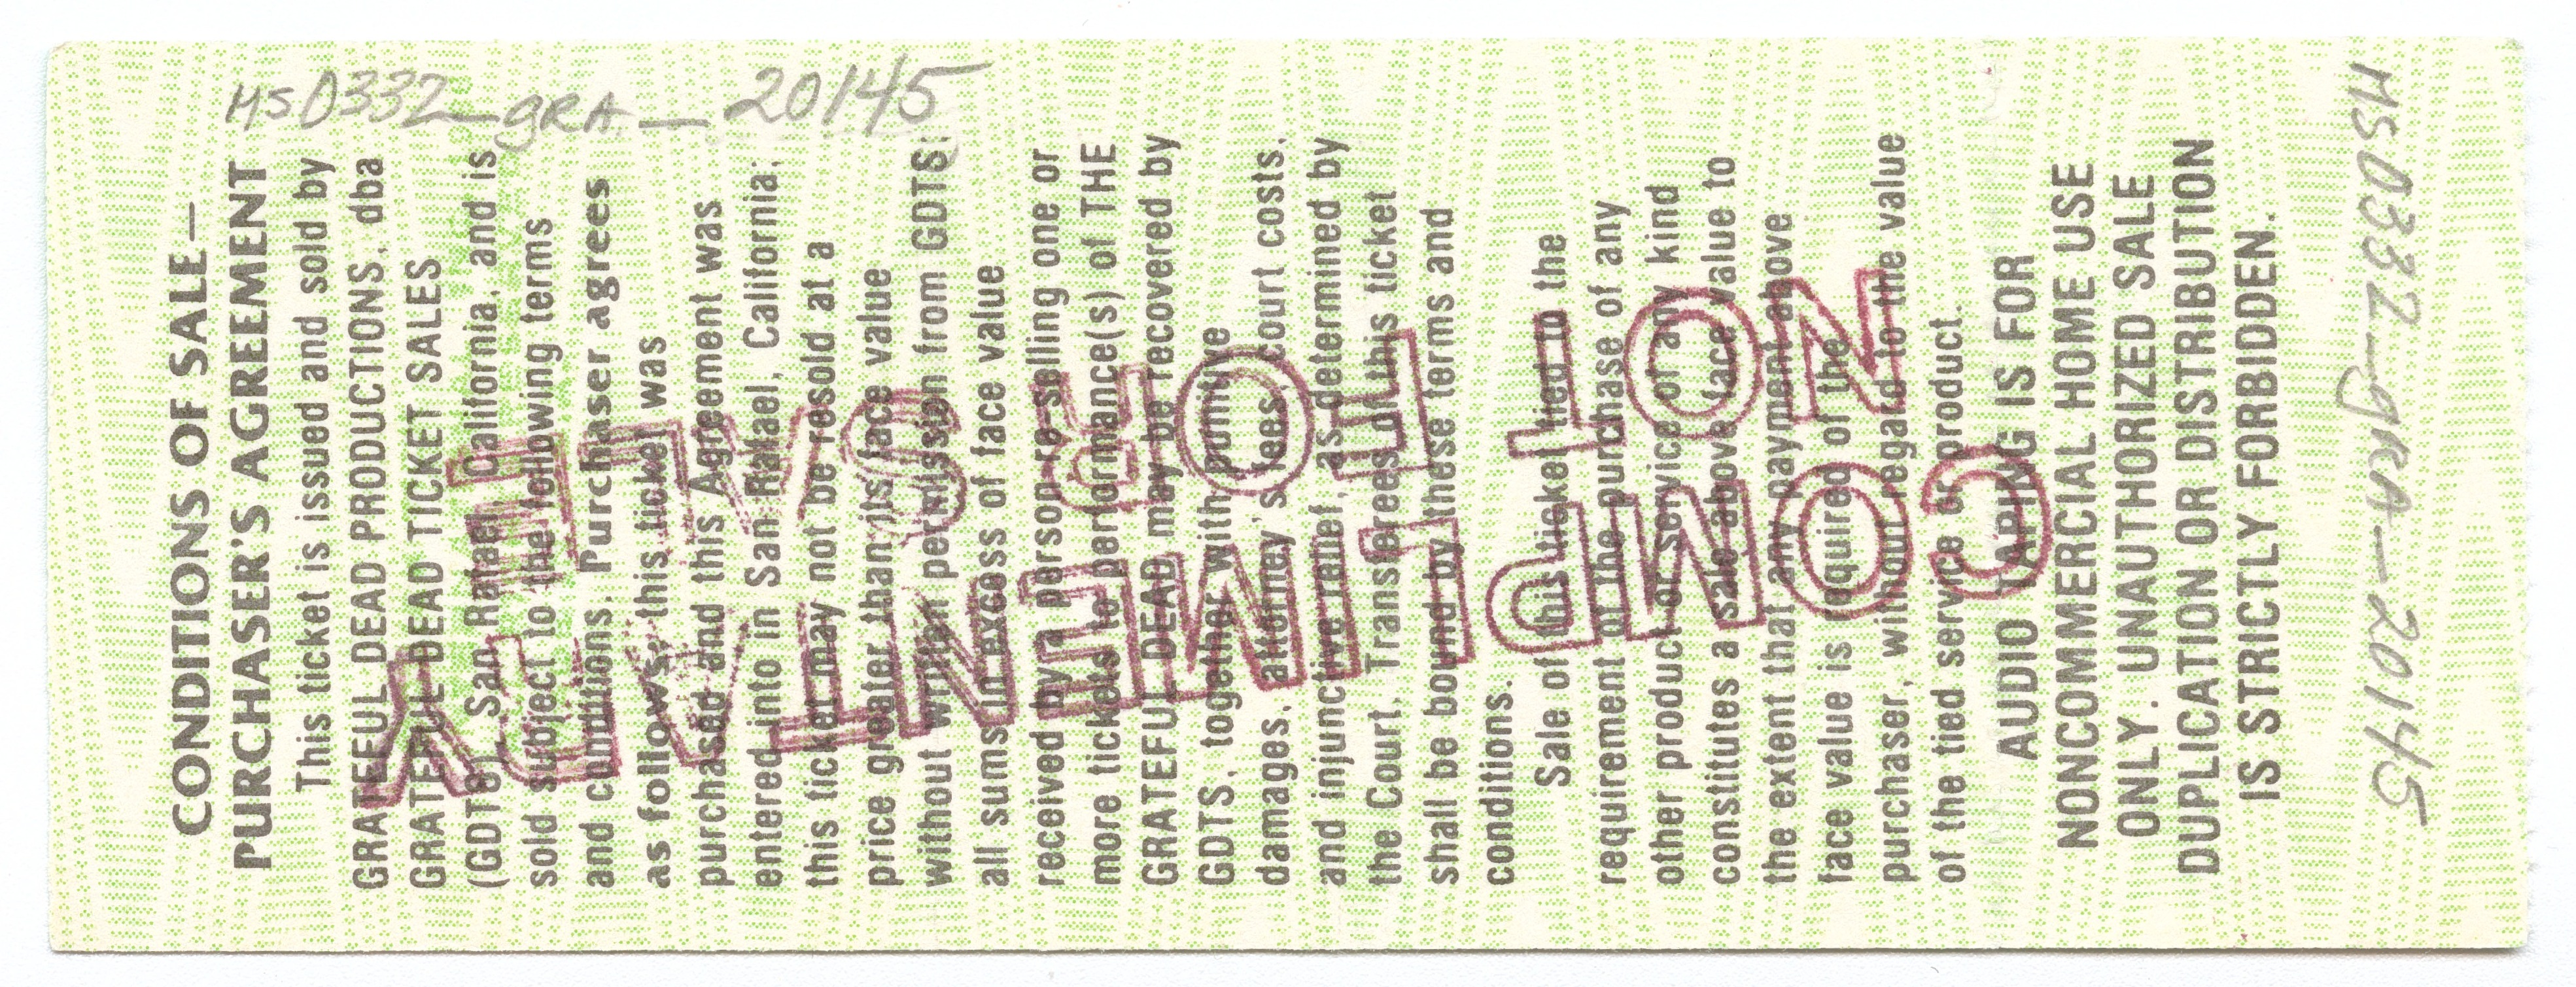 MS0332_gRA_20145
CONDITIONS OF SALE—
PURCHASER'S AGREEMENT
This ticket is issued and sold by
GRATEFUL DEAD PRODUCTIONS, dba
GRATEFUL DEAD TICKET SALES
(GDTS), San Rafael, California, and is
sold subject to the following terms
and conditions. Purchaser agrees
as follows: this ticket was
purchased and this Agreement was
entered into in San Rafael, California;
this ticket may not be resold at a
price greater than its face value
without written permission from GDTS;
all sums in excess of face value
received by a person re-selling one or
more tickets to performance(s) of THE
GRATEFUL DEAD may be recovered by
GDTS, together with punitive
damages, attorney's fees, court costs,
and injunctive relief, as determined by
the Court. Transferees of this ticket
shall be bound by these terms and
conditions.
Sale of this ticket tied to the
requirement of the purchase of any
other product or service of any kind
constitutes a sale above face value to
the extent that any payment above
face value is required of the
purchaser, without regard to the value
of the tied service or product.
AUDIO TAPING IS FOR
NONCOMMERCIAL HOME USE
ONLY. UNAUTHORIZED SALE
DUPLICATION OR DISTRIBUTION
IS STRICTLY FORBIDDEN.
COMPLIMENTARY
NOT FOR SALE
MS0332_gRA_20145